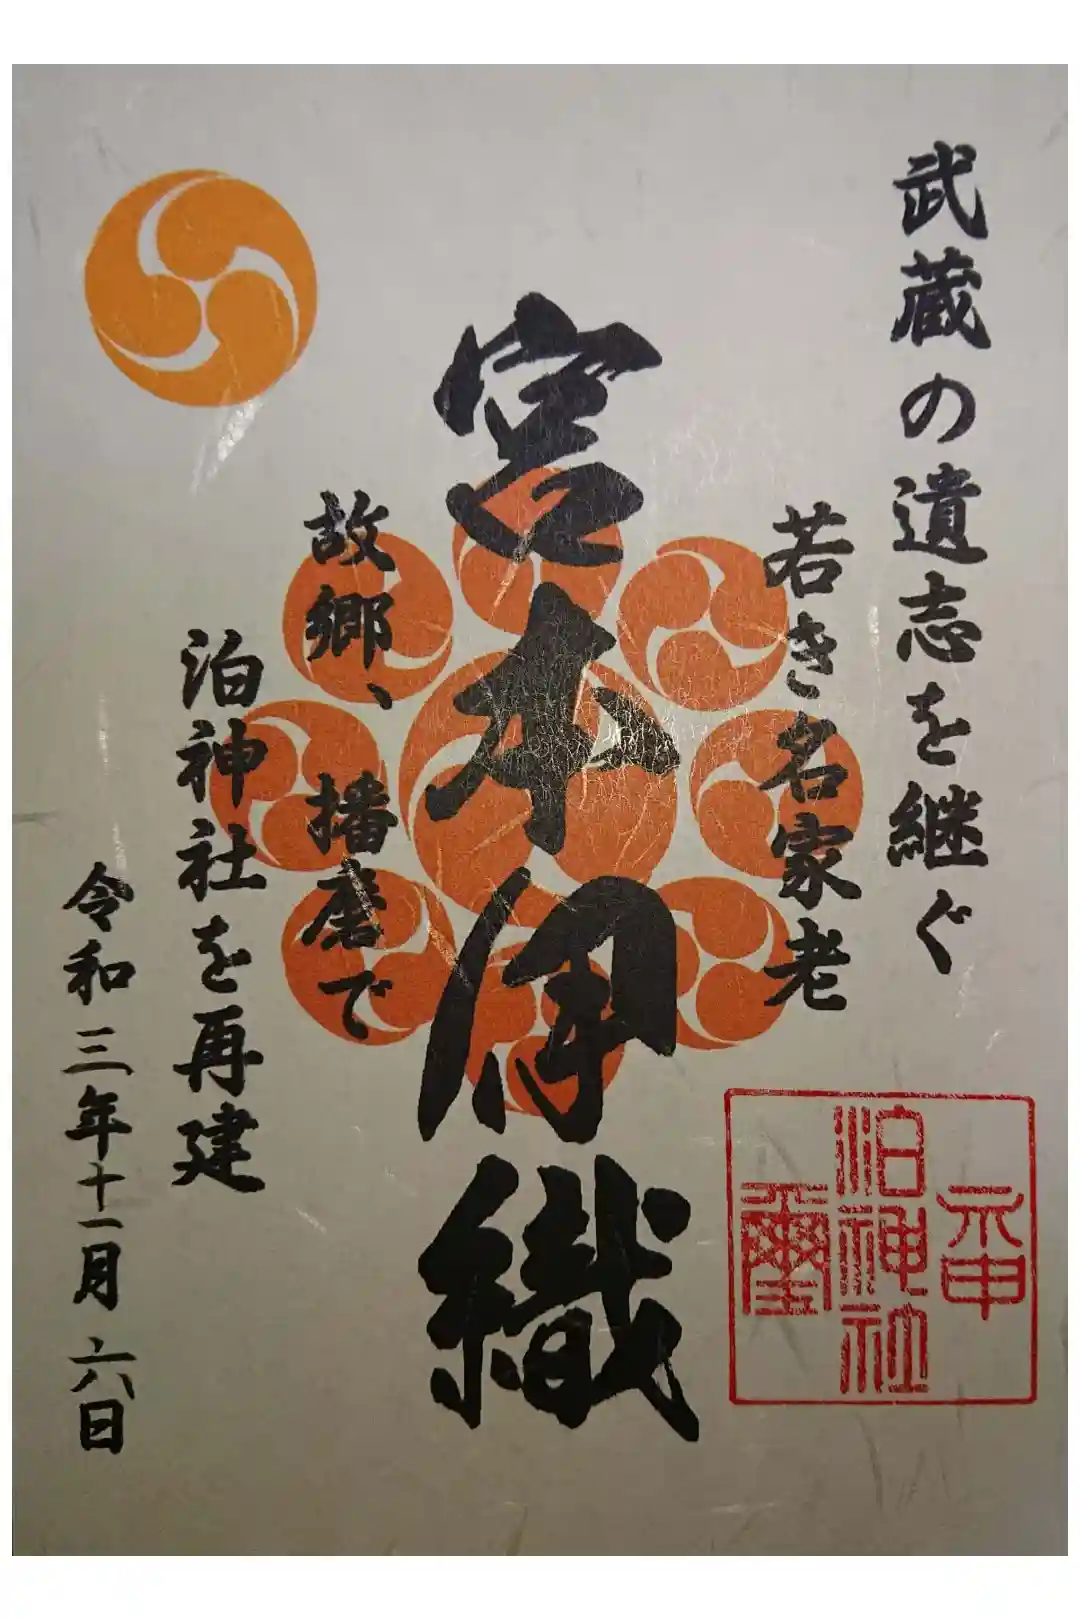 武蔵の遺志を継ぐ
若き名家老
宮本伊織
故郷、播磨で
泊神社を再建
令和三年十一月六日
泊神社